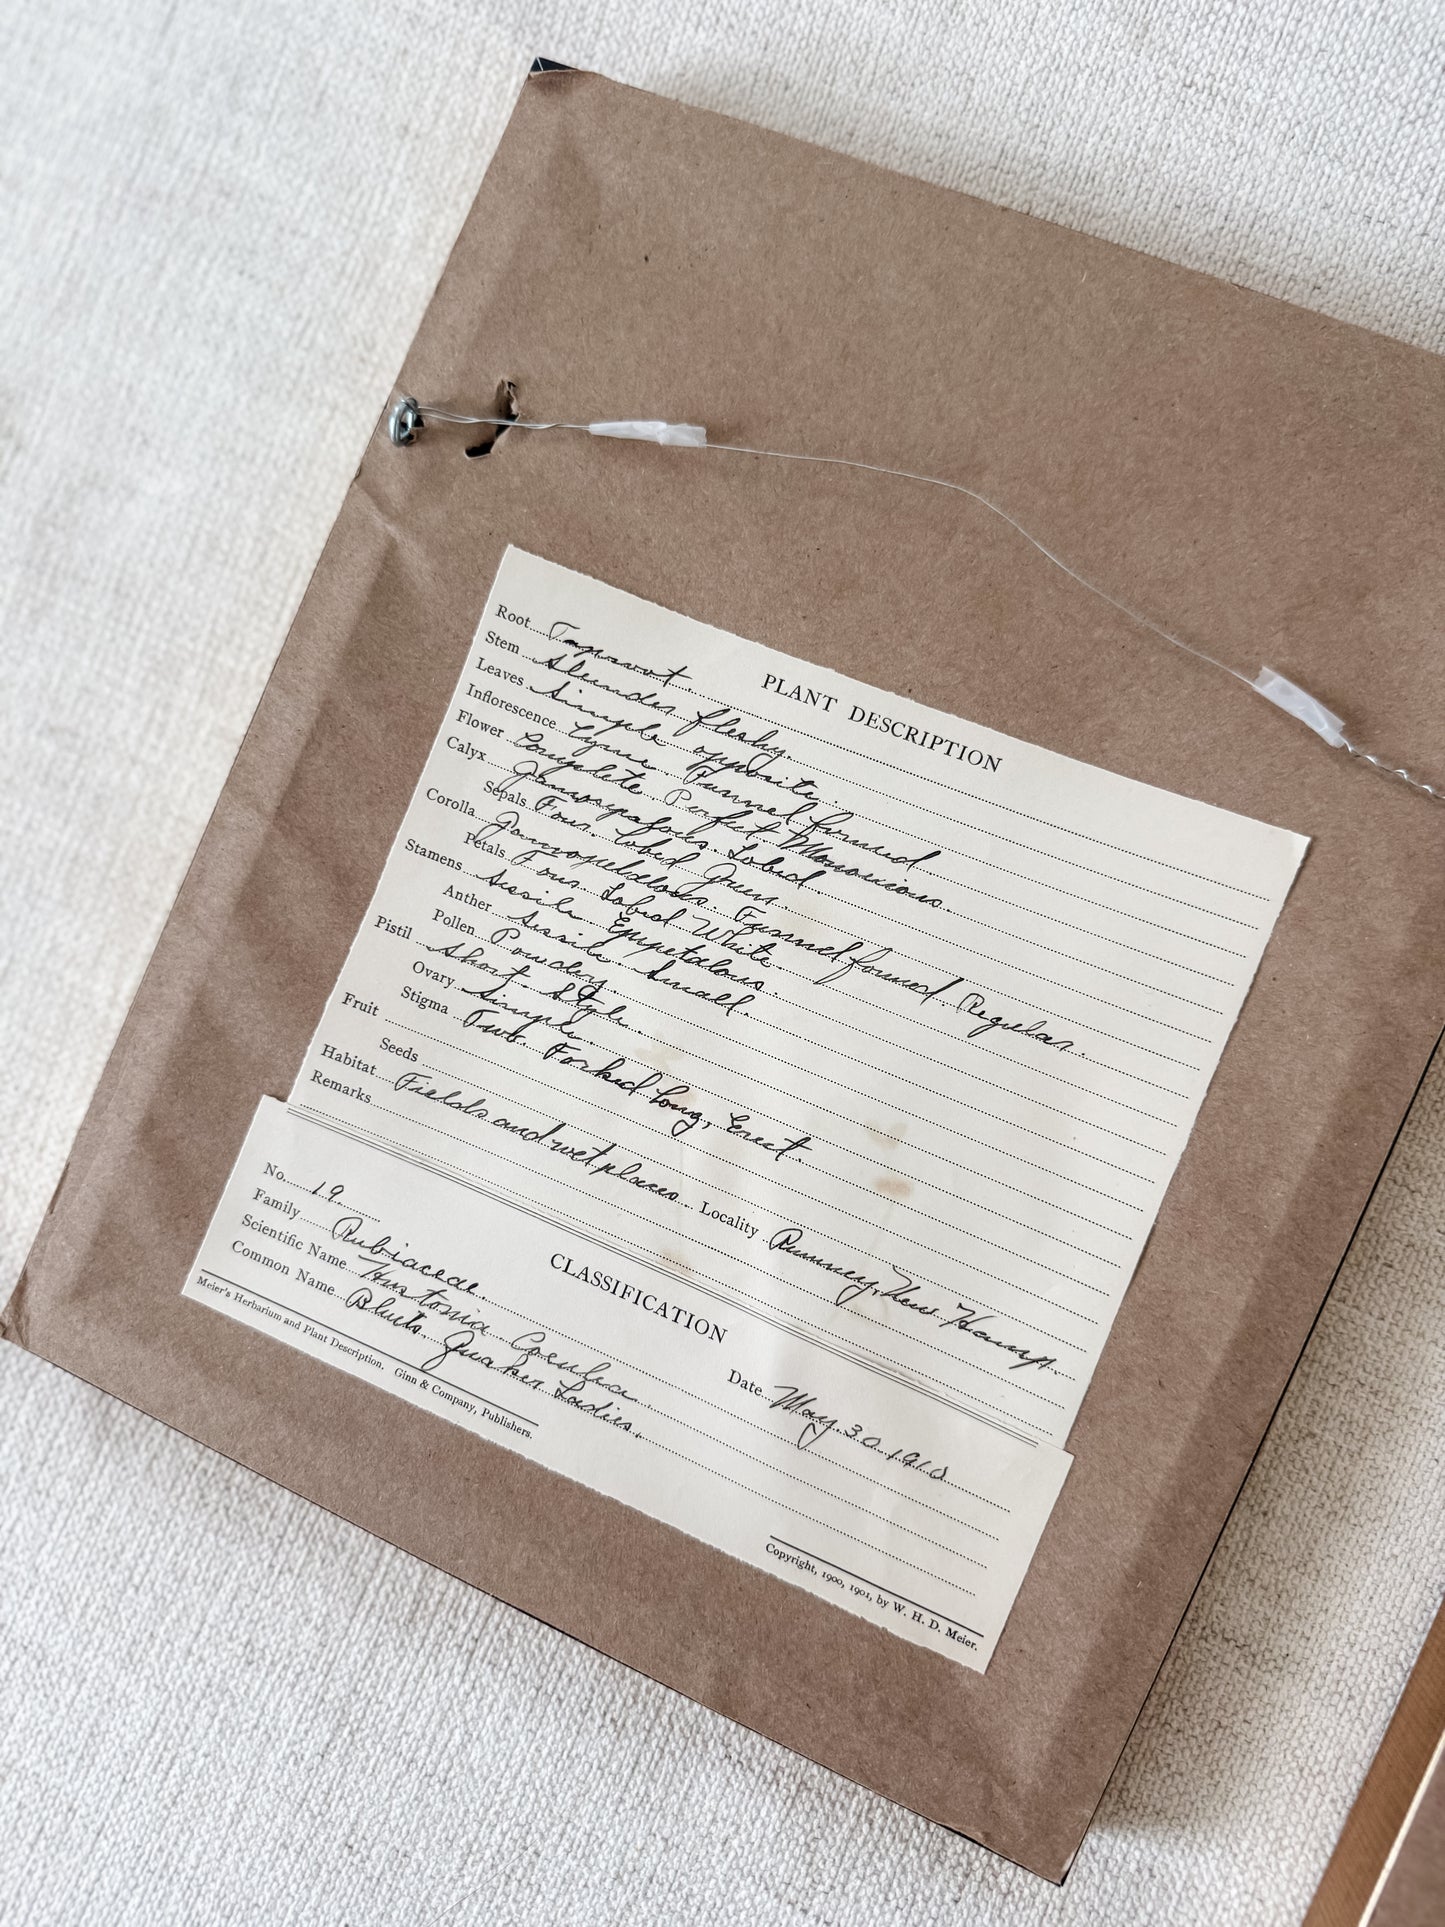 PLANT DESCRIPTION
Root Taproot.
Stem Slender fleshy.
Leaves Simple opposite.
Inflorescence Cyme. Funnel formed
Flower Complete Perfect Monoecious.
Calyx Gamosepalous. Lobed.
Sepals Four lobed Green.
Corolla Gamopetalous. Funnel formed Regular.
Petals Four Lobed White.
Stamens Sessile Epipetalous.
Anther Sessile. Small.
Pollen Powdery.
Pistil Short. Style.
Ovary Simple.
Stigma Two. Forked Long, Erect.
Fruit
Seeds
Habitat Fields and wet places. Locality Rumney, New. Hamp.
Remarks
CLASSIFICATION
No. 19 Date May 30 1910
Family Rubiaceae.
Scientific Name Hustonia Coerulea
Common Name Bluets. Quaker Ladies.
Meier's Herbarium and Plant Description. Ginn & Company, Publishers. Copyright, 1900, 1901, by W. H. D. Meier.